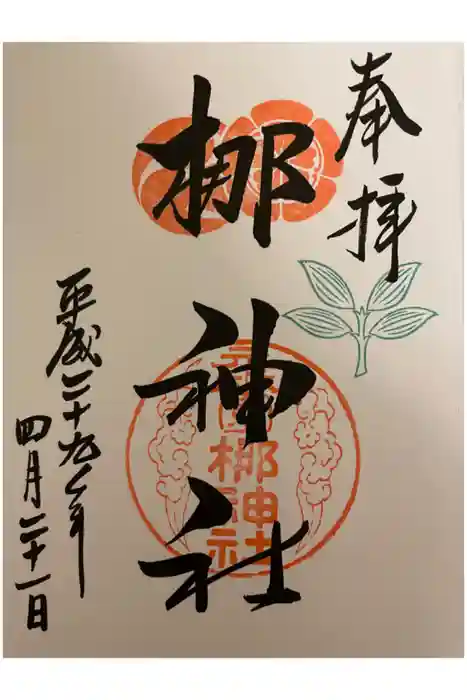 奉拝
梛神社
元祇園
梛神社
平成二十九年
四月二十一日